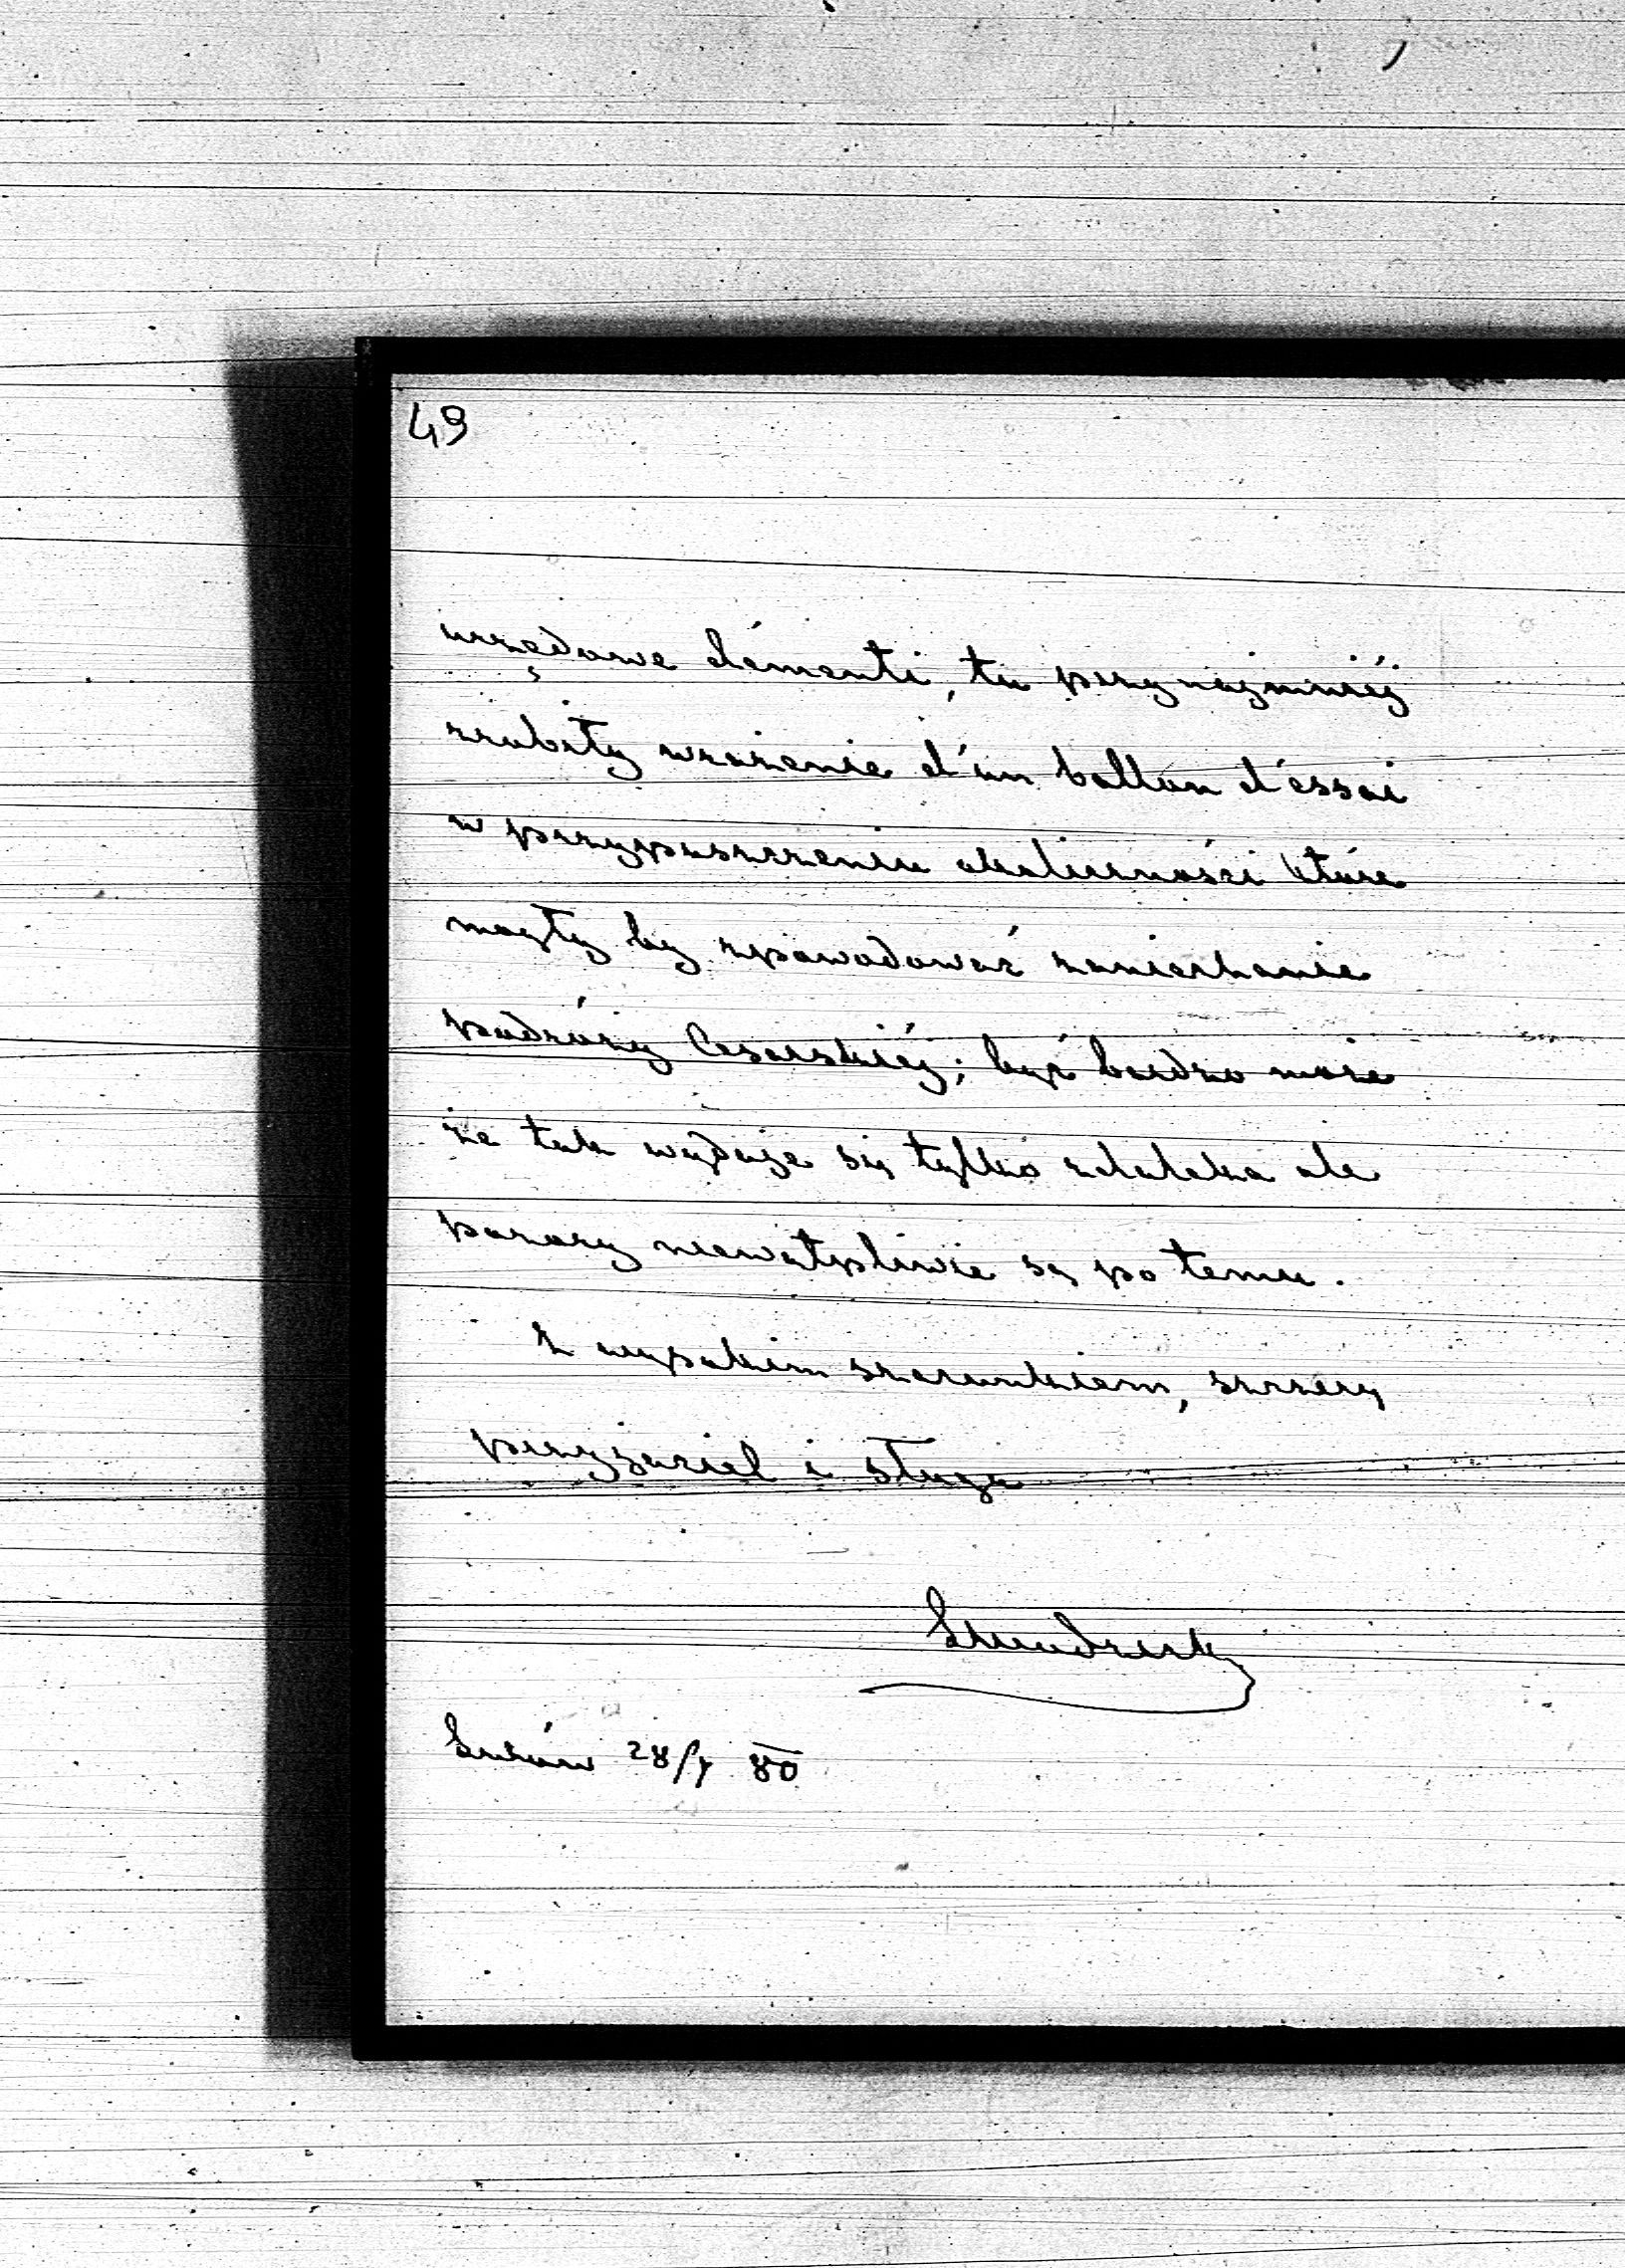 49
urzędowe démenti, tu przynajmniéj
zrobiły wrażenie d'un ballon d'essai
w przypuszczeniu okoliczności które
mogły by spowodować zaniechanie
podróży Cesarskiéj; być bardzo może
że tak wydaje się tylko zdaleka ale
pozory niewątpliwie są po temu.
Z wysokim szacunkiem, szczery
przyjaciel i sługa
28/7 80